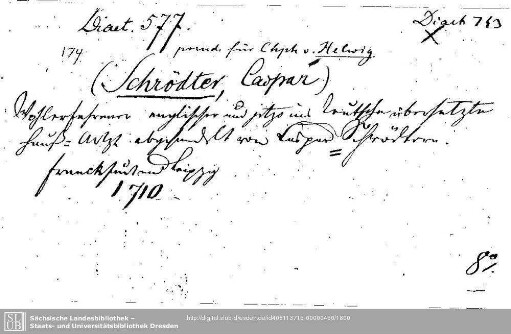 Diaet. 577.
Diaet 743
174.
pseud. für Chph v. Helwig.
(Schrödter, Caspar)
Wohlerfahrner englischer und jetzo ins Teutsche übersetzte
Hauß=Artzt abgehandelt von Caspar Schrödtern.
Franckfurt und Leipzig
1710.
8º.
SLUB
Sächsische Landesbibliothek –
Staats- und Universitätsbibliothek Dresden